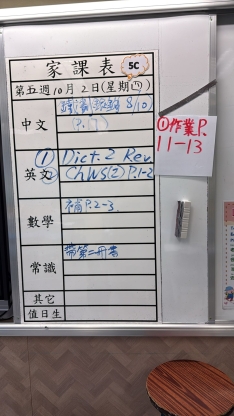 家課表
5C
第五週10月2日(星期四)
中文
8/10)
(P.7)
①作業P.
11-13
英文
① Dict. 2 Rev.
② ChWS(2) P.1-2
數學
補P.2-3
常識
帶第二冊書
其它
值日生